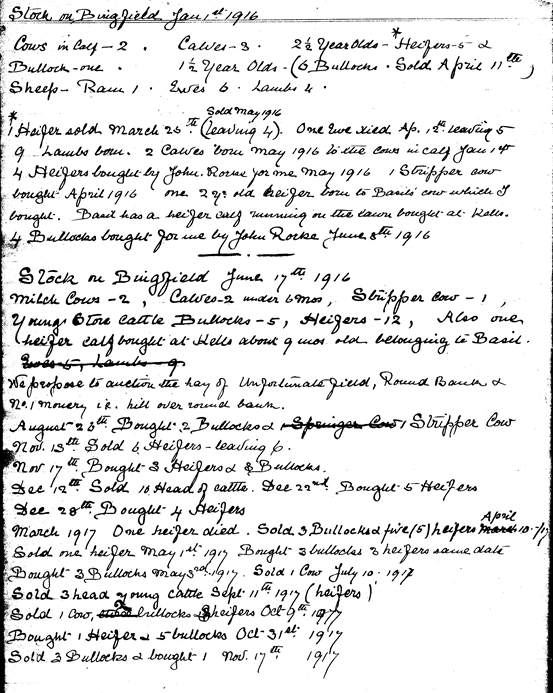 Stock on Bingfield Jan 1st 1916
Cows in Calf - 2 . Calves - 3 . 2½ Year Olds - *Heifers - 5 &
Bullock - one . 1½ Year Olds - (6 Bullocks . Sold April 11th)
Sheep - Ram 1 . Ewes 6 . Lambs 4 .
Sold May 1916
*1 Heifer sold March 25th (leaving 4). One Ewe died Ap. 12th leaving 5
9 Lambs born. 2 Calves born May 1916 to the cows in calf Jan 1st
4 Heifers bought by John Rorke for me May 1916 1 Stripper cow
bought April 1916 one 2 yr old heifer born to Basil's cow which I
bought. Basil has a heifer calf running on the lawn bought at Kells.
4 Bullocks bought for me by John Rorke June 8th 1916
Stock on Bingfield June 17th 1916
Milch Cows - 2, Calves - 2 under 6 mos, Stripper cow - 1,
Young Store cattle Bullocks - 5, Heifers - 12, Also one
heifer calf bought at Kells about 9 mos old belonging to Basil.
Ewes - 5, Lambs - 9
We propose to auction the hay of Unfortunate field, Round Bank &
No. 1 i.e. hill over round bank.
August 25th Bought 2 Bullocks & 1 Springer Cow 1 Stripper Cow
Nov. 13th Sold 6 Heifers - leaving 6.
Nov 17th Bought 3 Heifers & 3 Bullocks.
Dec 12th Sold 10 Head of cattle. Dec 22nd Bought 5 Heifers
Dec 28th Bought 4 Heifers
April
March 1917 One heifer died . Sold 3 Bullocks & five (5) heifers March 10-/17
Sold one heifer May 1st 1917 Bought 3 bullocks 3 heifers same date
Bought 3 Bullocks May 3rd 1917. Sold 1 Cow July 10 . 1917
Sold 3 head young cattle Sept 11th 1917 (heifers)
Sold 1 Cow, 2 bullocks heifers Oct 9th 1917
Bought 1 Heifer & 5 bullocks Oct 31st 1917
Sold 3 Bullocks & bought 1 Nov. 17th 1917